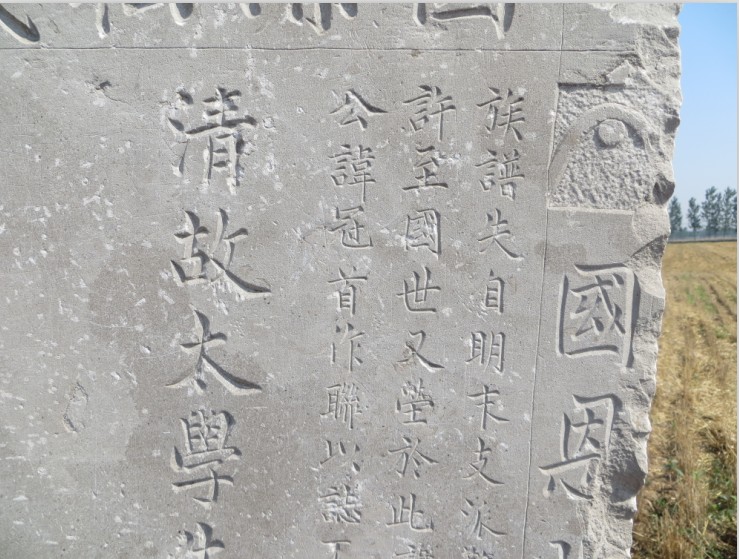 國恩
族譜失自明末支派
許至國世又塋於此
公諱冠首作聯以誌
清故太學生